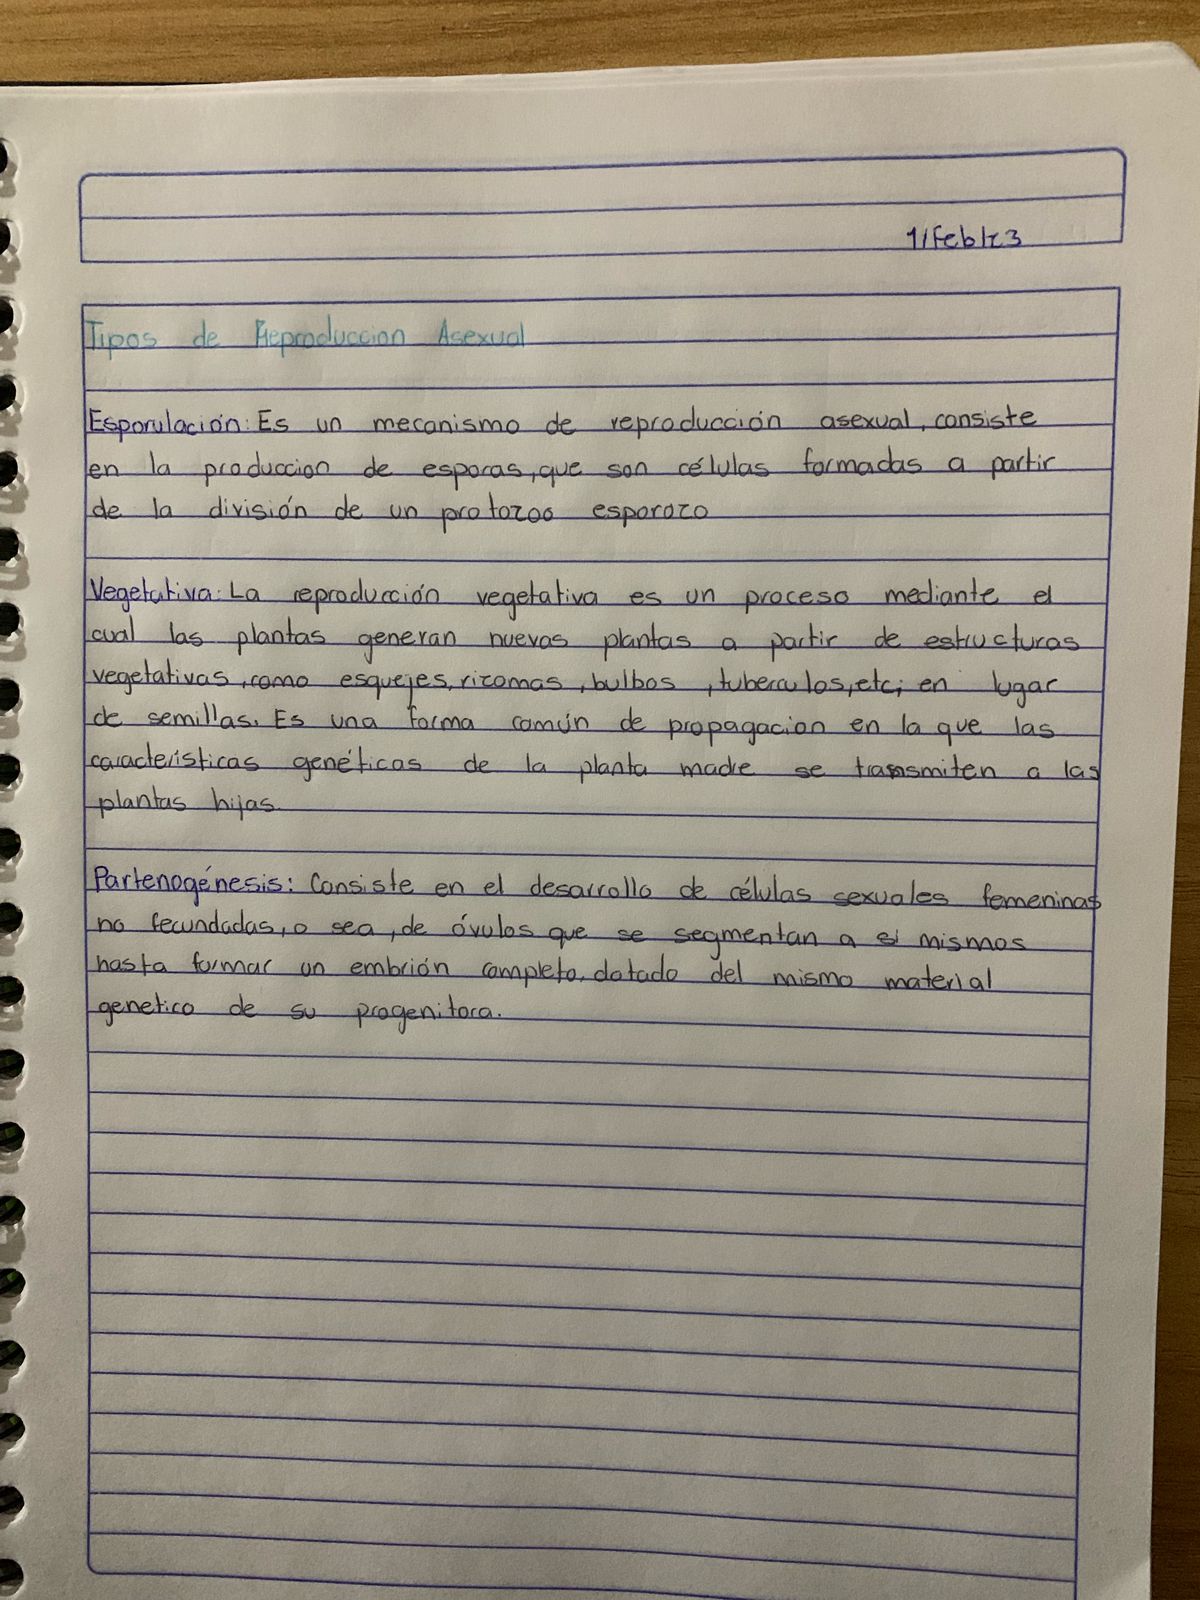 1/Feb/23
Tipos de Reproduccion Asexual
Esporulación: Es un mecanismo de reproducción asexual, consiste
en la produccion de esporas, que son células formadas a partir
de la división de un protozoo esporozo
Vegetativa: La reproducción vegetativa es un proceso mediante el
cual las plantas generan nuevas plantas a partir de estructuras
vegetativas, como esquejes, rizomas, bulbos, tuberculos, etc; en lugar
de semillas. Es una forma común de propagacion en la que las
características genéticas de la planta madre se transmiten a las
plantas hijas.
Partenogénesis: Consiste en el desarrollo de células sexuales femeninas
no fecundadas, o sea, de óvulos que se segmentan a si mismos
hasta formar un embrión completo, dotado del mismo material
genetico de su progenitora.